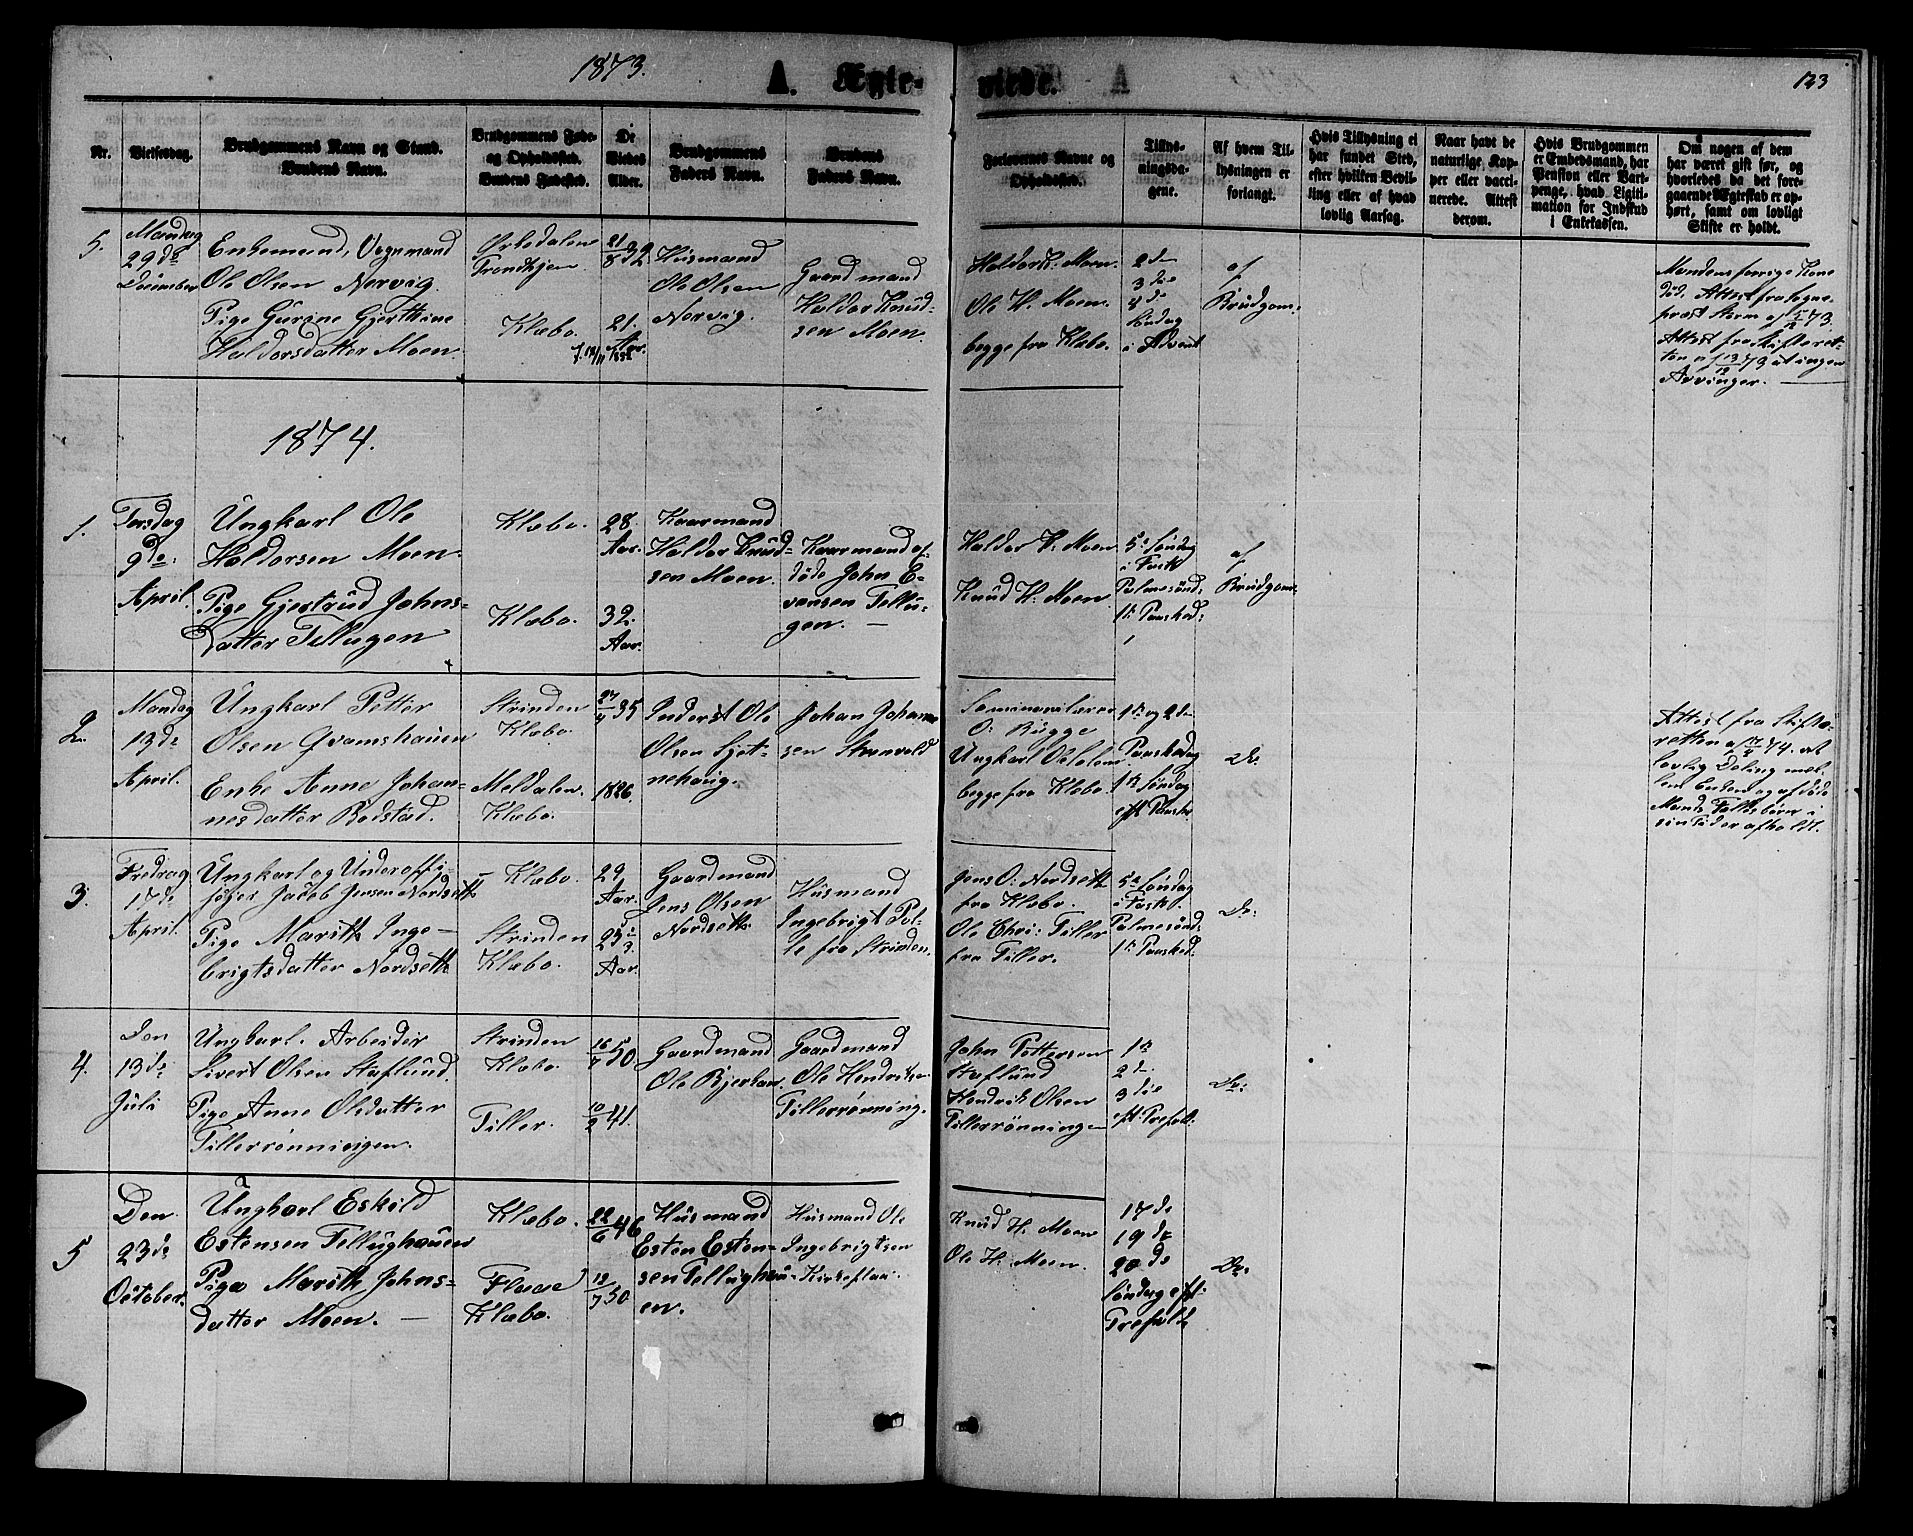 1873.
A. Ægte-
viede.
123
Nr.
Vielsesdag.
Brudgommens Navn og Stand.
Brudens Navn.
Brudgommens Føde-
og Opholdssted.
Brudens Fødested.
De
Viedes
Alder.
Brudgommens
Faders Navn.
Brudens
Faders Navn.
Forlovernes Navne og
Opholdssted.
Tillys-
ningsda-
gene.
Af hvem Til-
lysningen er
forlangt.
Hvis Tillysning ei
har fundet Sted,
efter hvilken Bevil-
ling eller af hvad
lovlig Aarsag.
Naar havt de
naturlige Kop-
per eller vacci-
nerede. Attest
derom.
Hvis Brudgommen
er Embedsmand, har
Pension eller Vart-
penge, hvad Ligiti-
mation for Indskud
i Enkekassen.
Om nogen af dem
har været gift før, og
hvorledes da det fore-
gaaende Ægteskab er op-
hørt, samt om lovligt
Skifte er holdt.
5.
Mandag
29de
December
Enkemand, Vognmand
Ole Olsen Nervig.
Pige Gurine Gjerthine
Haldorsdatter Moen.
Orkedalen
Trondhjem
Klæbo.
21/8 32
21.
Aar.
Husmand
Ole Olsen
Nervig.
Gaardmand
Haldor Knud-
sen Moen.
Haldor K. Moen.
Ole H. Moen.
begge fra Klæbo.
2den
3die
4de
Søndag
i Advent
af
Brudgom:
Mandens forrige Kone
død. Attest fra Sogne-
præst Storm af 5/12 73.
Attest fra Skifteret-
ten af 13/12 73 at ingen
Arvinger.
1874.
1.
Torsdag
9de
April.
Ungkarl Ole
Haldorsen Moen.
Pige Gjertrud Johns-
datter Tellugen
Klæbo.
Klæbo.
28.
Aar.
32.
Aar.
Kaarmand
Haldor Knud-
sen Moen.
Kaarmand af-
døde John E-
vensen Tellu-
gen.
Haldor K: Moen
Knud H: Moen
5e Søndag
i Fast
Palmesønd:
1te Paasked:
af
Brudgom.
2.
Mandag
13de
April.
Ungkarl Petter
Olsen Gvamshauen
Enke Anne Johan-
nesdatter Bodstad.
Strinden
Klæbo.
Meldalen.
Klæbo.
27/4 35
1826.
Inderst Ole
Olsen Sjet-
nehaug.
Johan Johanne-
sen
Seminarielærer
O: Bugge
Ungkarl
begge fra Klæbo.
1te og 2den
Paaskedag
1te Søndag
eft Paaske
Do.
Attest fra Skifte-
retten af 74. at
lovlig Deling mel-
lem Enken og afdøde
Mands Fellesbørn i
sin Tid er afholdt.
3.
Fredag
17de
April.
Ungkarl og Underoffi-
ser Jacob Jensen Nordseth
Pige Marith Inge-
brigtsdatter Nordseth
Klæbo.
Strinden
Klæbo.
29
Aar.
23
Aar.
Gaardmand
Jens Olsen
Nordseth.
Husmand
Ingebrigt Pal-
le fra Strinden.
Jens O: Nordseth
fra Klæbo.
Ole Chri: Tiller
fra Tiller.
5e Søndag
i Fast.
Palmesønd:
1te Paasked.
Do:
4.
Den
13de
Juli
Ungkarl. Arbeider
Sivert Olsen Staflund.
Pige Anne Olsdatter
Tillerrønningen.
Strinden
Klæbo.
Tiller.
16/7 50.
10/2 41.
Gaardmand
Ole Bjerkan.
Gaardmand
Ole Hendriksen
Tillerrønning.
John Pettersen
Staflund
Hendrik Olsen
Tillerrønningen
1te
2den
3die
eft: Trefol:
Do:
5
Den
23de
October.
Ungkarl Eskild
Estensen Tellughauen
Pige Marith Johns-
datter Moen.
Klæbo.
Flaae
Klæbo.
22/6 46
12/7 50.
Husmand
Esten Esten-
sen Tellughau-
en.
Husmand Ole
Ingebrigtsen
Kirkeflaa.
Knud H. Moen
Ole H. Moen.
17de
19de
20de
Søndag eft:
Trefold.
Do.